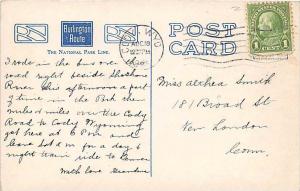 Burlington
Route
THE NATIONAL PARK LINE.
POST
CARD
CODY, WYO.
AUG 18
1 CENT 1
I rode in the bus over
road right beside Shoshone
River this afternoon a part
of time in the Park then
miles & miles over the Cody
Road to Cody Wyoming
get here at 6 P.m. and
leave at 8 m for a day &
night train ride to Denver
With love Grandma
Miss Althea Smith
181 Broad St
New London
Conn.